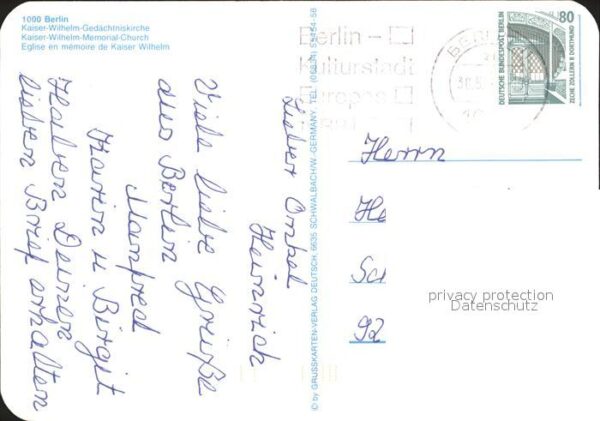 1000 Berlin
Kaiser-Wilhelm-Gedächtniskirche
Kaiser-Wilhelm-Memorial-Church
Eglise en mémoire de Kaiser Wilhelm
Lieber Onkel
Heinrich
Viele liebe Grüße
aus Berlin
Manfred
Karin u Birgit
Haben Deinen
lieben Brief erhalten
© by GRUSSKARTEN-VERLAG DEUTSCH, 6635 SCHWALBACH/W.-GERMANY, TEL. (06834) 55454-56
Berlin –
Kulturstadt
Europas
80
DEUTSCHE BUNDESPOST BERLIN
ZECHE ZOLLERN II DORTMUND
Herrn
He
Sc
92
privacy protection
Datenschutz